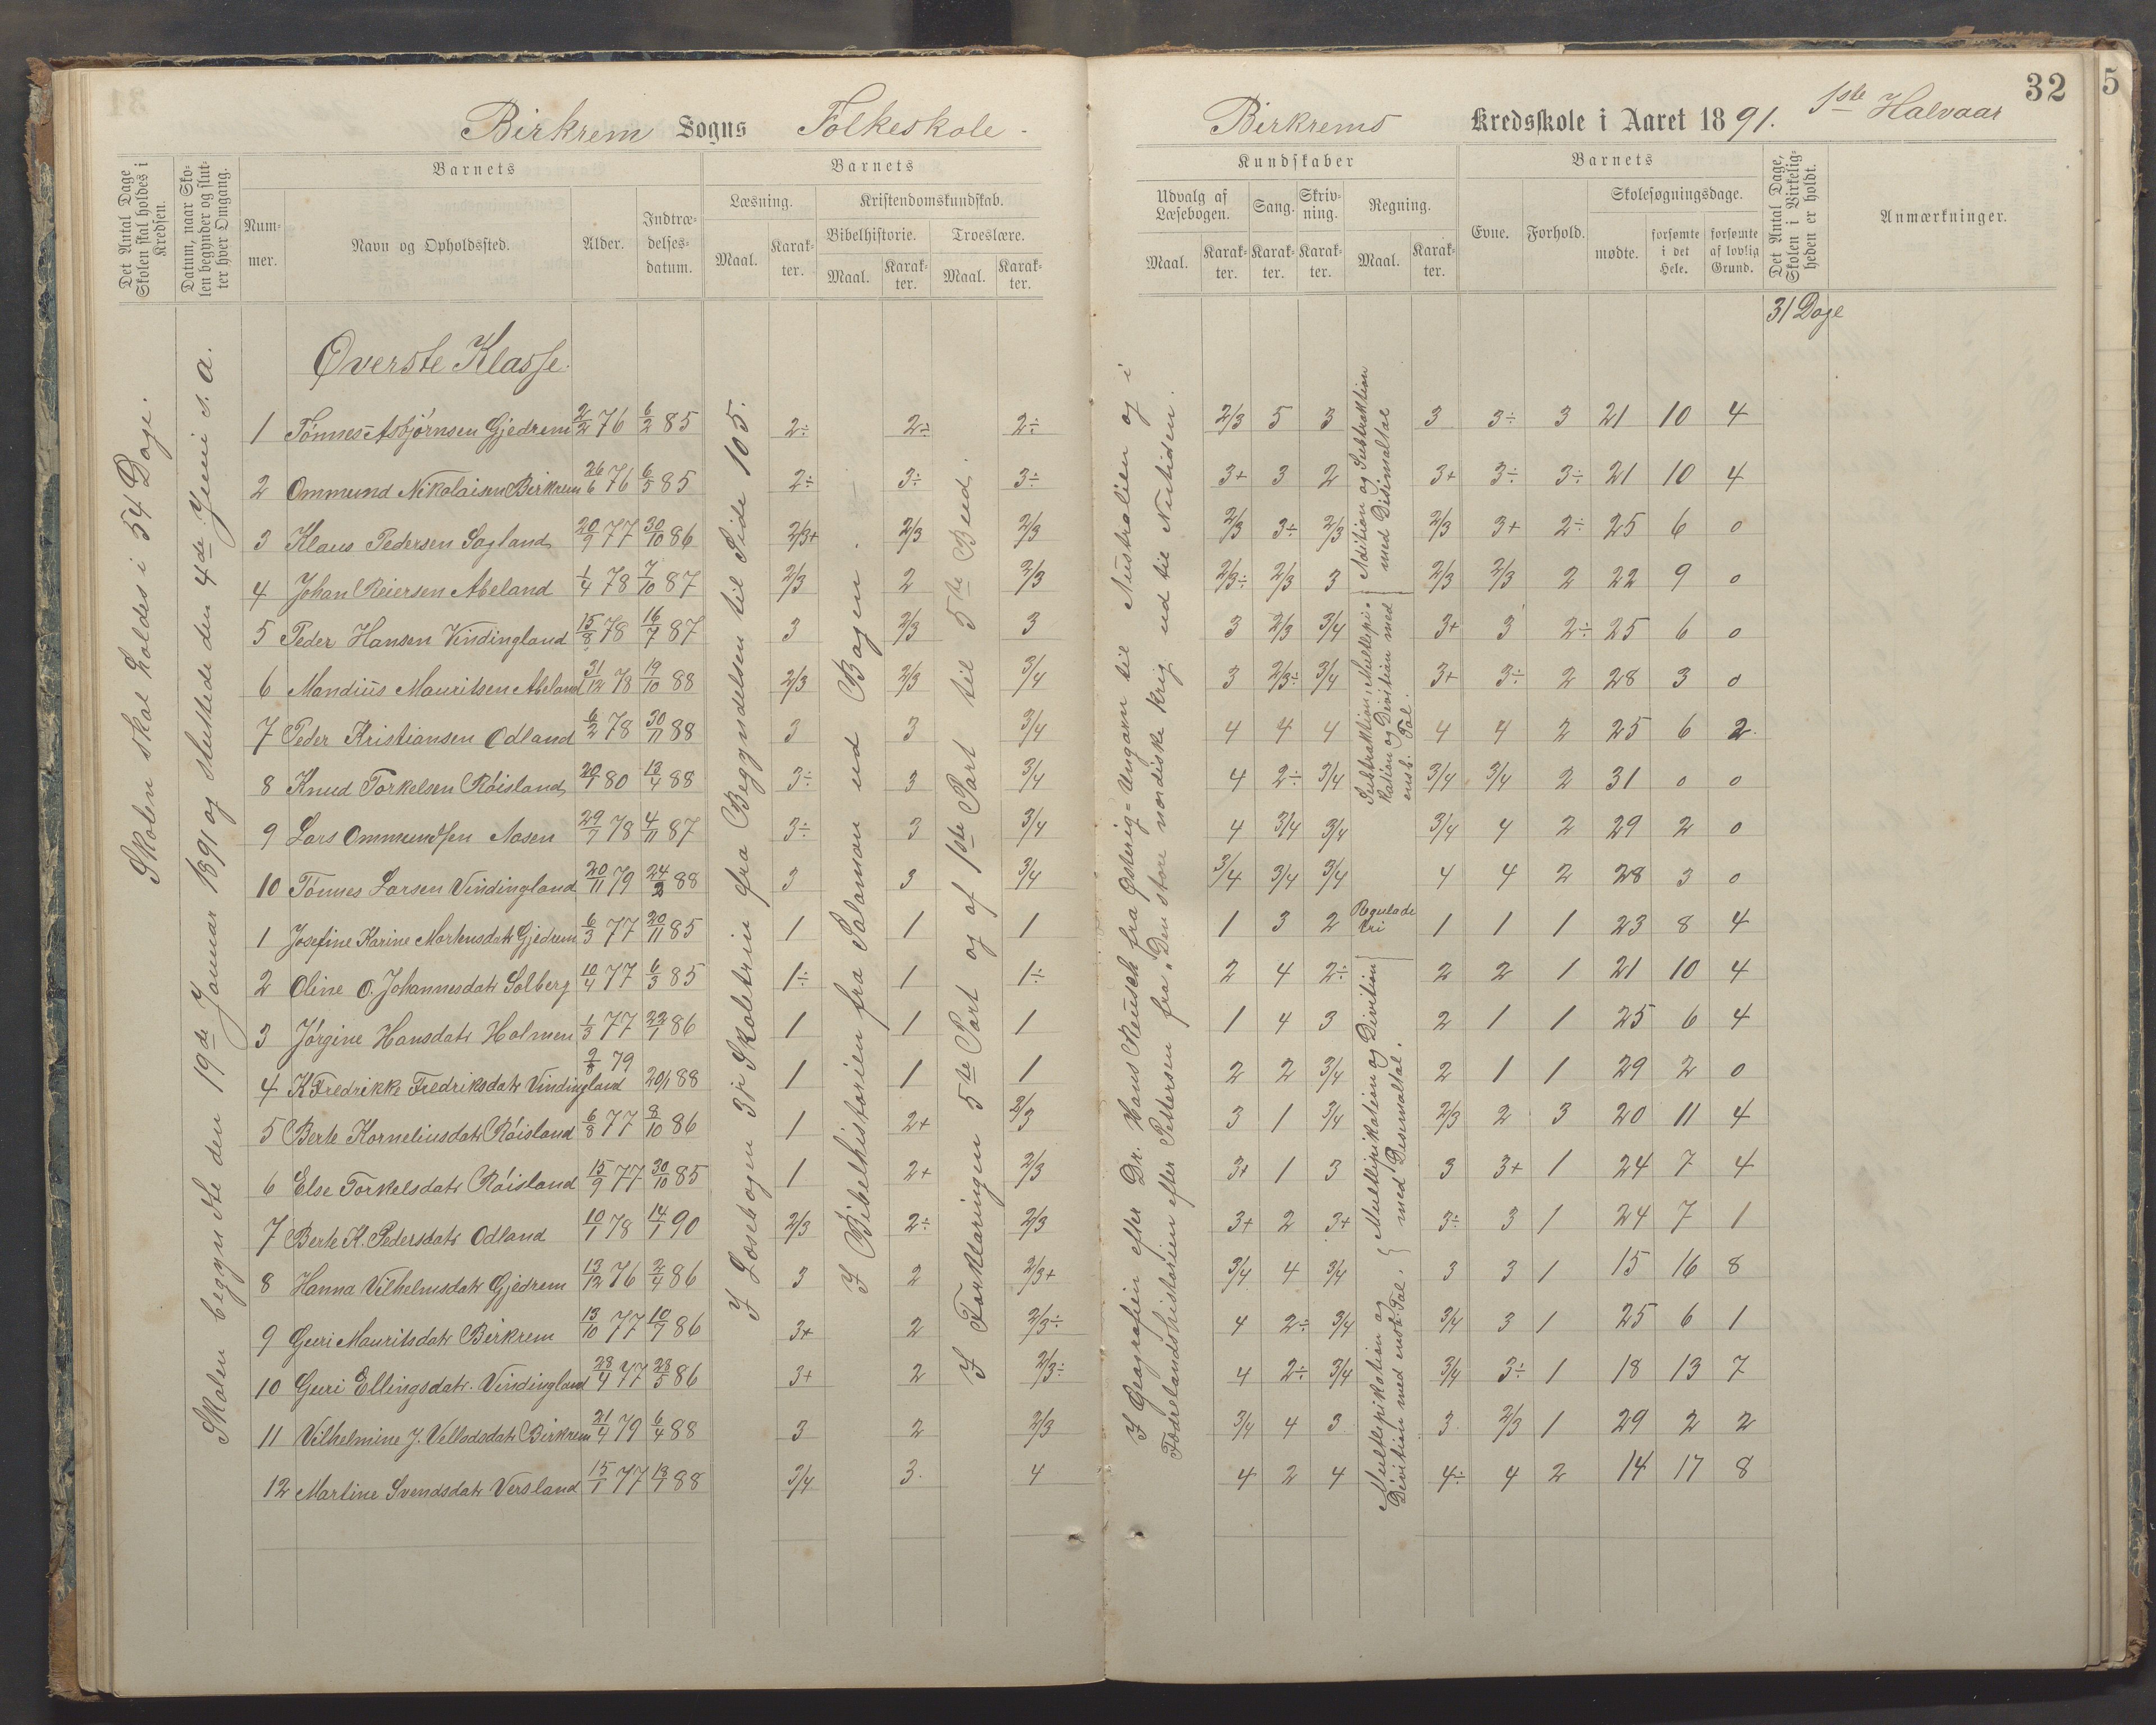 32
5
Birkrem Sogns Folkeskole
Birkrems Kredsskole i Aaret 1891. 1ste Halvaar
Det Antal Dage Skolen skal holdes i Kredsen.
Datum, naar Skolen begynder og slutter hver Omgang.
Barnets
Nummer.
Navn og Opholdssted.
Alder.
Indtrædelsesdatum.
Barnets
Læsning.
Maal.
Karakter.
Kristendomskundskab.
Bibelhistorie.
Maal.
Karakter.
Troeslære.
Maal.
Karakter.
Kundskaber
Udvalg af Læsebogen.
Maal.
Karakter.
Sang.
Karakter.
Skrivning.
Karakter.
Regning.
Maal.
Karakter.
Barnets
Evne.
Forhold.
Skolesøgningsdage.
mødte.
forsømte i det Hele.
forsømte af lovlig Grund.
Det Antal Dage, Skolen i Virkeligheden er holdt.
Anmærkninger.
31 Dage
Skolen skal holdes i 54 Dage.
Skolen begyndte den 19de Januar 1891 og sluttede den 4de Juni s. a.
Øverste Klasse.
I Læsebogen 3je Skoletrin fra Begyndelsen til Side 105.
I Bibelhistorien fra Salomon ud Bogen.
I Forklaringen 5te Part og af 1ste Part til 5te Bud.
I Geografien efter Dr. Hans Reusch fra Østerig=Ungarn til Australien og i
Fædrelandshistorien efter Pettersen fra "Den store nordiske krig ud til Nutiden.
Adition og Subtraktion
med Disimaltal
Subtraktion, Multipi-
kation og Divition med
ensb. Tal.
Regulade
tri
Multipikation og Divition
med Desimaltal.
Multipikation og
Divition med ensb. Tal.
1 Tønnes Asbjørnsen Gjedrem 2/2 76 6/2 85 2÷ 2÷ 2÷ 2/3 5 3 3 3÷ 3 21 10 4
2 Ommund Nikolaisen Birkrem 26/6 76 6/5 85 2÷ 3÷ 3÷ 3+ 3 2 3+ 3÷ 3÷ 21 10 4
3 Klaus Pedersen Sagland 20/9 77 30/10 86 2/3+ 2/3 2/3 2/3 3÷ 2/3 2/3 3+ 2÷ 25 6 0
4 Johan Reiersen Abeland 1/4 78 7/10 87 2/3 2 2/3 2/3÷ 2/3 3 2/3 2/3 2 22 9 0
5 Peder Hansen Vindingland 15/8 78 16/7 87 3 2/3 3 3 2/3 3/4 3+ 3 2÷ 25 6 0
6 Mandius Mauritsen Abeland 31/12 78 19/10 88 2/3 2/3 3/4 3 2/3÷ 3/4 3+ 3÷ 2 28 3 0
7 Peder Kristiansen Odland 6/2 78 30/11 88 3 3 3/4 4 4 4 4 4 2 25 6 2
8 Knud Torkelsen Røisland 20/1 80 13/4 88 3÷ 3 3/4 4 2÷ 3/4 3/4 3/4 2 31 0 0
9 Lars Ommundsen Aasen 29/7 78 4/11 87 3÷ 3 3/4 4 3/4 3/4 3/4 4 2 29 2 0
10 Tønnes Larsen Vindingland 20/11 79 24/2 88 3 3 3/4 3/4 3/4 3/4 4 4 2 28 3 0
1 Josefine Karine Mortensdatr Gjedrem 6/3 77 20/11 85 1 1 1 1 3 2 1 1 1 23 8 4
2 Oline O. Johannesdatr Solberg 10/4 77 6/3 85 1÷ 1 1÷ 2 4 2÷ 2 2 1 21 10 4
3 Jørgine Hansdatr Holmen 1/3 77 22/1 86 1 1 1 1 4 3 2 1 1 25 6 4
4 K Fredrikke Fredriksdatr Vindingland 2/8 79 20/1 88 1 1 1 2 2 3/4 2 1 1 29 2 0
5 Berte Korneliusdatr Røisland 6/8 77 8/10 86 1 2+ 2/3 3 1 3/4 2/3 2 3 20 11 4
6 Else Torkelsdatr Røisland 15/9 77 30/10 85 1 2+ 2/3 3+ 1 3 3 3+ 1 24 7 4
7 Berte K. Pedersdatr Odland 10/1 78 14/1 90 2/3 2÷ 2/3 3+ 2 3+ 3÷ 3 1 24 7 1
8 Hanna Vilhelmsdatr Gjedrem 13/12 76 2/4 86 3 2 2/3+ 3/4 4 3/4 3 3 1 15 16 8
9 Guri Mauritsdatr Birkrem 13/10 77 10/7 86 3+ 2 2/3÷ 4 2÷ 3/4 3/4 3 1 25 6 1
10 Guri Ellingsdatr. Vindingland 28/4 77 28/5 86 3+ 2 2/3÷ 4 2÷ 3/4 3/4 3÷ 1 18 13 7
11 Vilhelmine J. Velladsdatr Birkrem 21/4 79 6/4 88 3 2 2/3 3/4 4 3 3 2/3 1 29 2 2
12 Martine Svendsdatr Versland 15/1 77 13/7 88 3/4 3 4 4 2 4 4÷ 4 2 14 17 8